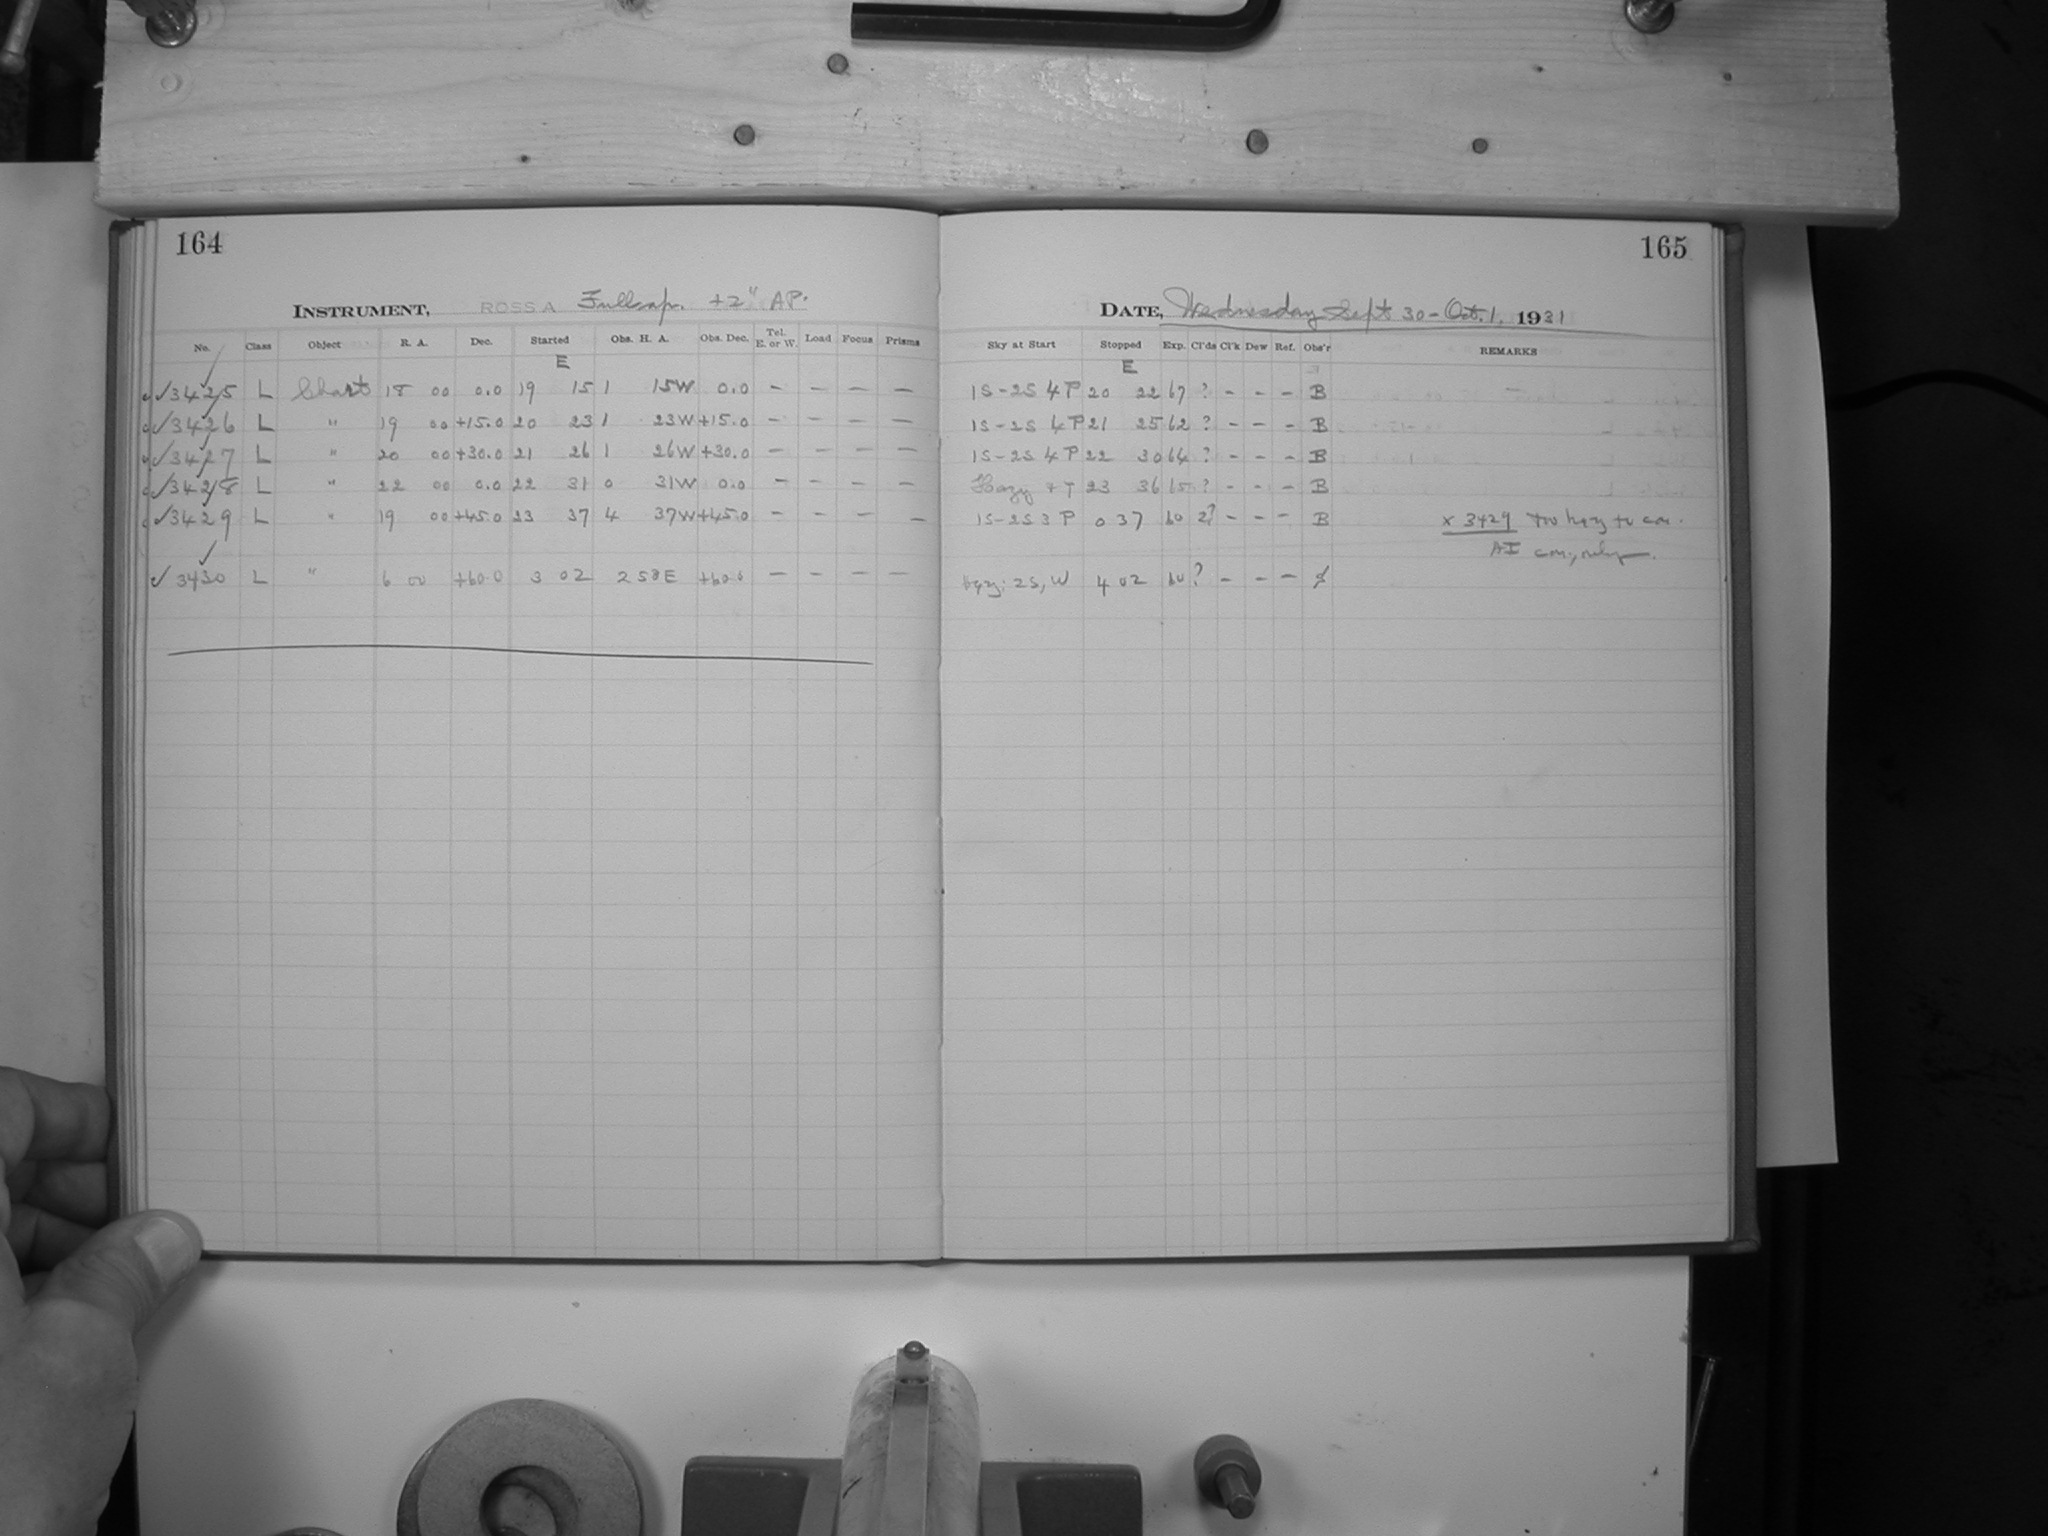 164
165
INSTRUMENT, ROSS A Full ap. +2" AP.
DATE, Wednesday Sept 30 - Oct. 1, 1931
No. Class Object R. A. Dec. Started Obs. H. A. Obs. Dec. Tel. E. or W. Load Focus Prisms
Sky at Start Stopped Exp. Cl'ds Cl'k Dew Ref. Obs'r REMARKS
E E
✓3425 L Chart 18 00 0.0 19 15 1 15W 0.0 – – – – 1S-2S 4 P 20 22 67 ? – – – B
✓3426 L " 19 00 +15.0 20 23 1 23W +15.0 – – – – 1S-2S 4 P 21 25 62 ? – – – B
✓3427 L " 20 00 +30.0 21 26 1 26W +30.0 – – – – 1S-2S 4 P 22 30 64 ? – – – B
✓3428 L " 22 00 0.0 22 31 0 31W 0.0 – – – – Hazy 23 36 65 ? – – – B
✓3429 L " 19 00 +45.0 23 37 4 37W +45.0 – – – – 1S-2S 3 P 0 37 60 2? – – – B x 3429 too hazy to
AI
✓ 3430 L " 6 00 +60.0 3 02 2 58E +60.0 – – – – Hazy; 2S, W 4 02 60 ? – – –